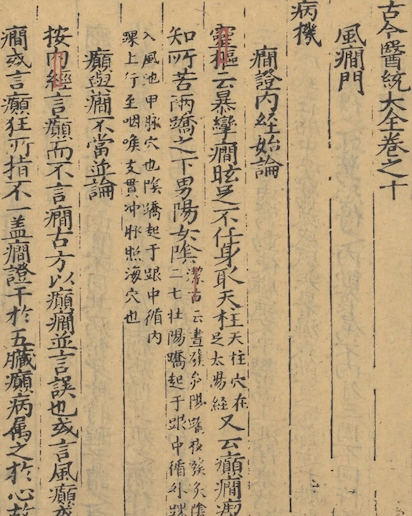 古今醫統大全卷之十
風癎門
病機
癎證內經始論
靈樞云暴攣癎眩足不任身取天柱天柱穴在足太陽經又云癲癎瘈
知所苦兩蹻之下男陽女陰潔古云晝發灸陽蹻夜發灸陰二七壯陽蹻起于跟中循外踝
上行入風池申脉穴也陰蹻起于跟中循內
踝上行至咽喉支貫冲脉照海穴也
癲與癎不當並論
按內經言癲而不言癎古方以癲癎並言誤也或言風癲或
癎或言癲狂所指不一蓋癎證干於五臟癲病属之於心故